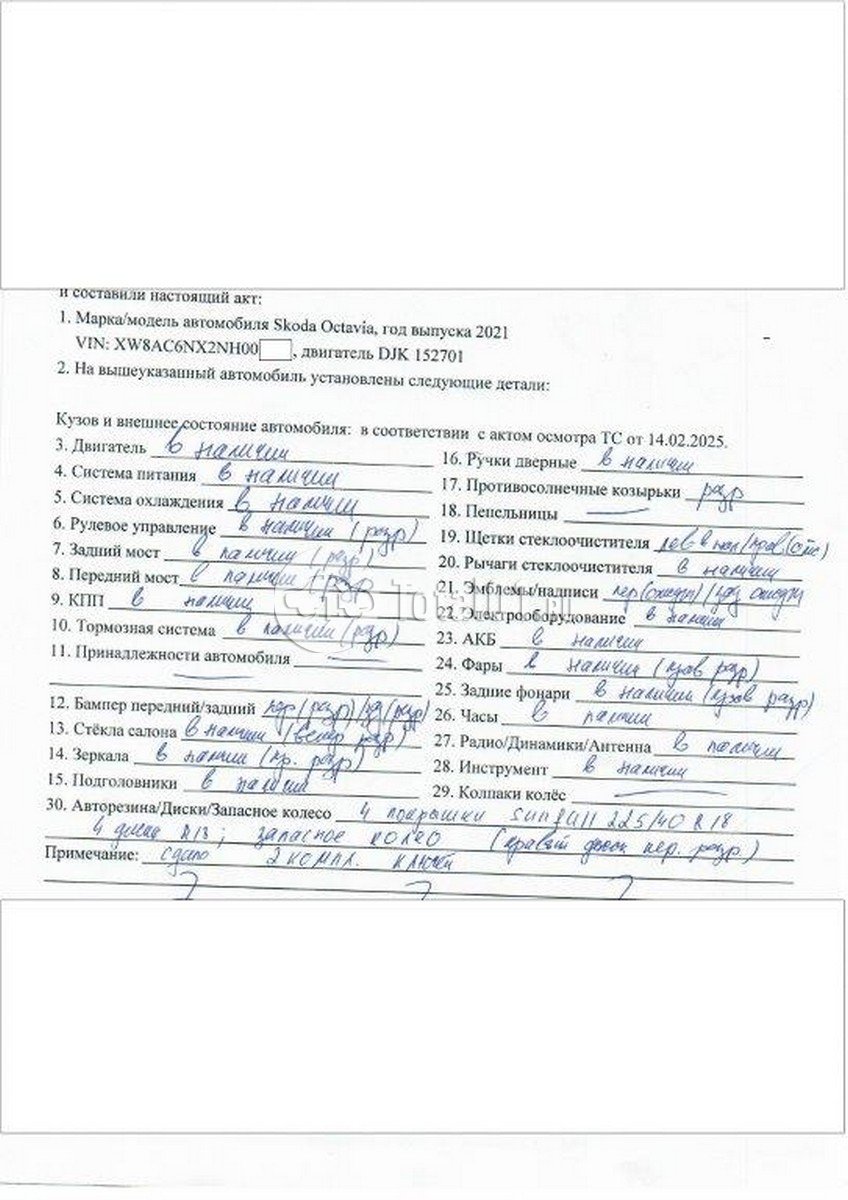 и составили настоящий акт:
1. Марка/модель автомобиля Skoda Octavia, год выпуска 2021
VIN: XW8AC6NX2NH00 , двигатель DJK 152701
2. На вышеуказанный автомобиль установлены следующие детали:
Кузов и внешнее состояние автомобиля: в соответствии с актом осмотра ТС от 14.02.2025.
3. Двигатель в наличии
4. Система питания в наличии
5. Система охлаждения в наличии
6. Рулевое управление в наличии (разр)
7. Задний мост в наличии (разр)
8. Передний мост в наличии (разр
9. КПП в наличии
10. Тормозная система в наличии (разр)
11. Принадлежности автомобиля —
12. Бампер передний/задний пер (разр) /зд (разр)
13. Стёкла салона в наличии (ветр разр)
14. Зеркала в наличии (пр. разр)
15. Подголовники в наличии
16. Ручки дверные в наличии
17. Противосолнечные козырьки разр
18. Пепельницы —
19. Щетки стеклоочистителя лев в нал/прав (отс)
20. Рычаги стеклоочистителя в наличии
21. Эмблемы/надписи
22. Электрооборудование в наличии
23. АКБ в наличии
24. Фары в наличии (прав разр)
25. Задние фонари в наличии (прав разр)
26. Часы в наличии
27. Радио/Динамики/Антенна в наличии
28. Инструмент в наличии
29. Колпаки колёс —
30. Авторезина/Диски/Запасное колесо 4 покрышки sunfull 225/40 R18
4 диска R18; запасное колесо (правый диск пер. разр)
Примечание: сдано 2 компл. ключей
Total01.ru